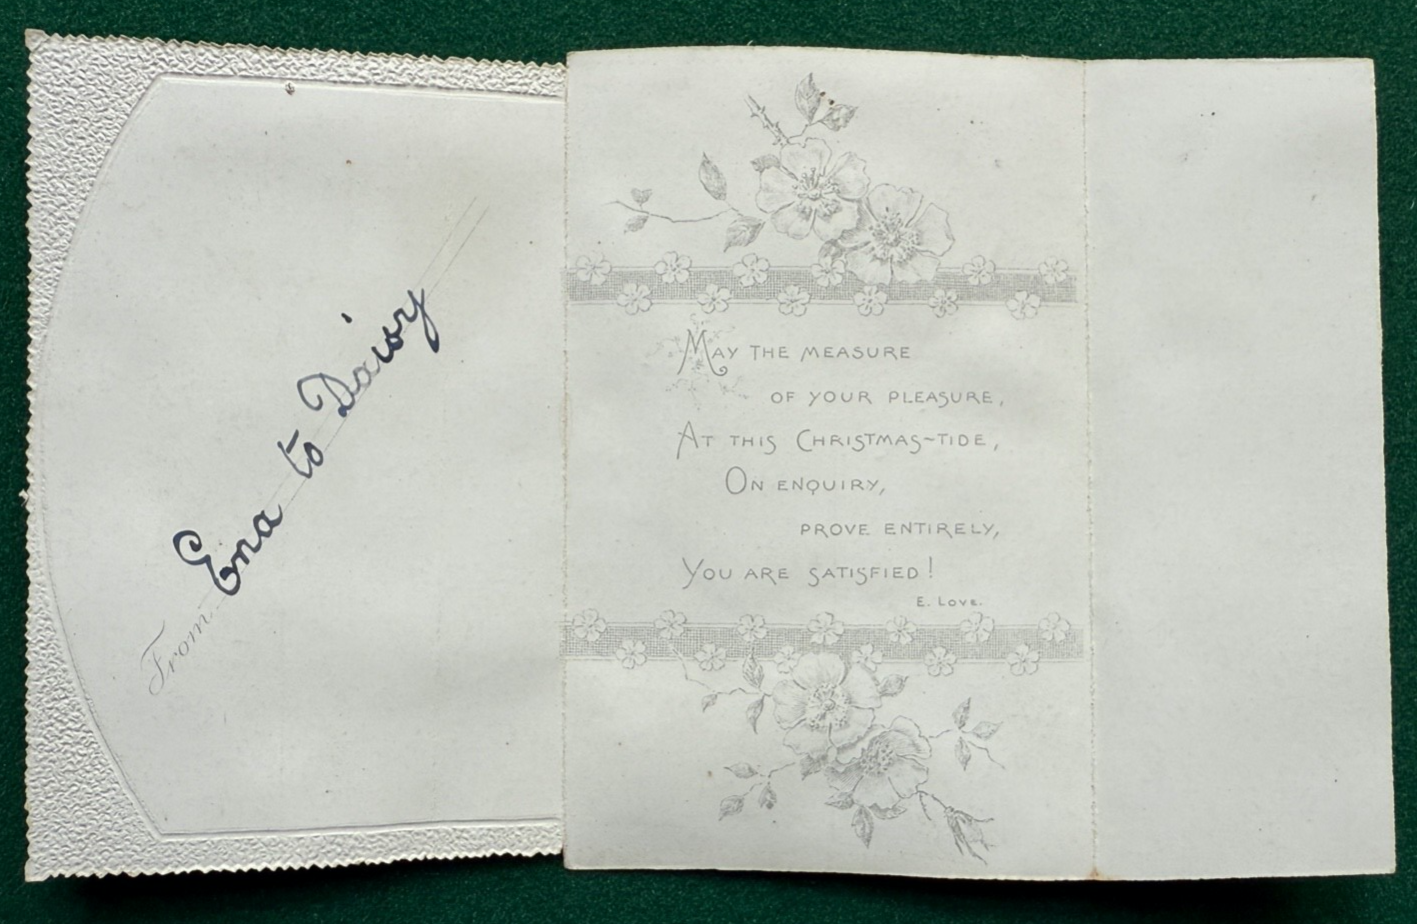 From Ena to Daisy
May the measure
of your pleasure,
At this Christmas~tide,
On enquiry,
prove entirely,
You are satisfied!
E. Love.